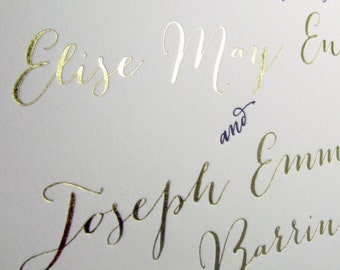 Elise May En
and
Joseph Emm
Barrin